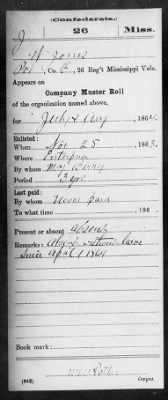 Confederate.
J 26 Miss.
W Jones
Co. E, 26 Reg't Mississippi Vols.
Appears on
Company Muster Roll
of the organization named above,
for July & Aug, 1864.
Enlisted:
When Nov 25, 1863.
Where Enterprise
By whom Maj Berry
Period 3 yrs
Last paid:
By whom Never paid
To what time , 186 .
Present or absent absent
Remarks: without leave
Since April 1, 1864
Book mark:
(642) Copyist.